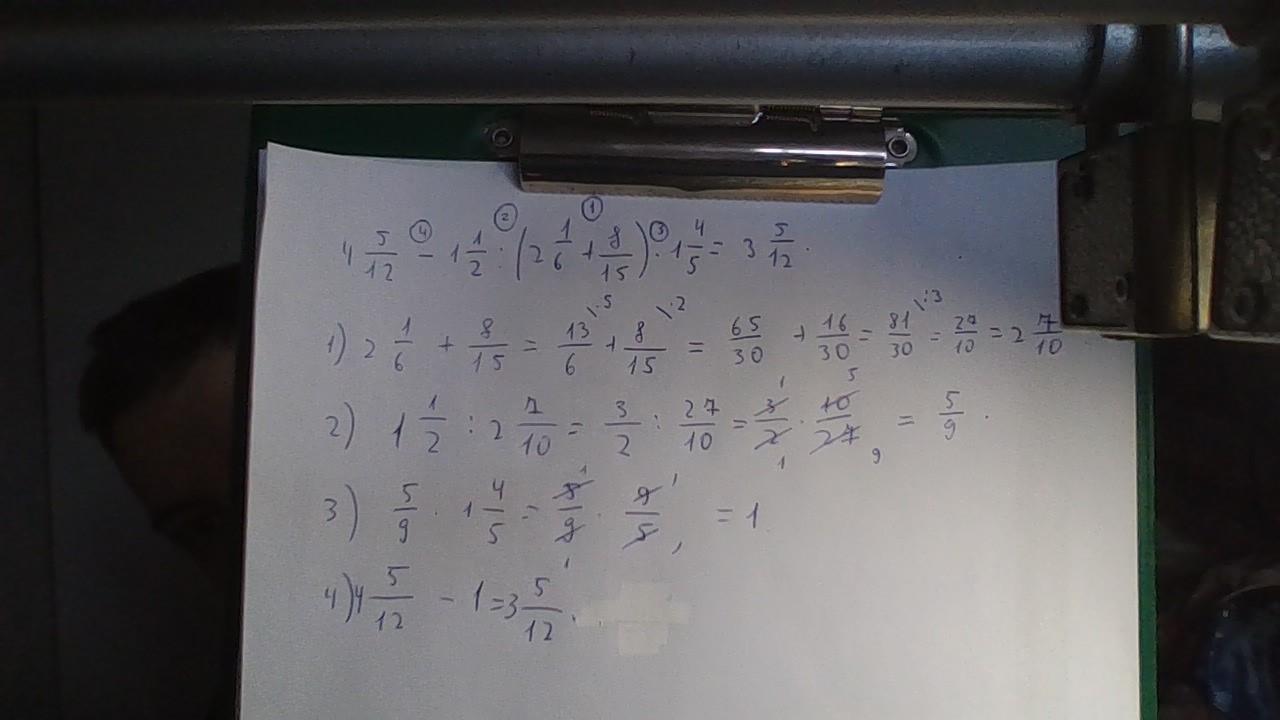 4 5/12 - 1 1/2 : (2 1/6 + 8/15) · 1 4/5 = 3 5/12.
④ ② ① ③
1) 2 1/6 + 8/15 = 13/6 \·5 + 8/15 \·2 = 65/30 + 16/30 = 81/30 \:3 = 27/10 = 2 7/10
2) 1 1/2 : 2 7/10 = 3/2 : 27/10 = 3/2 · 10/27 = 5/9.
1 5 1 9
3) 5/9 · 1 4/5 = 5/9 · 9/5 = 1
1 1 1 1
4) 4 5/12 - 1 = 3 5/12.